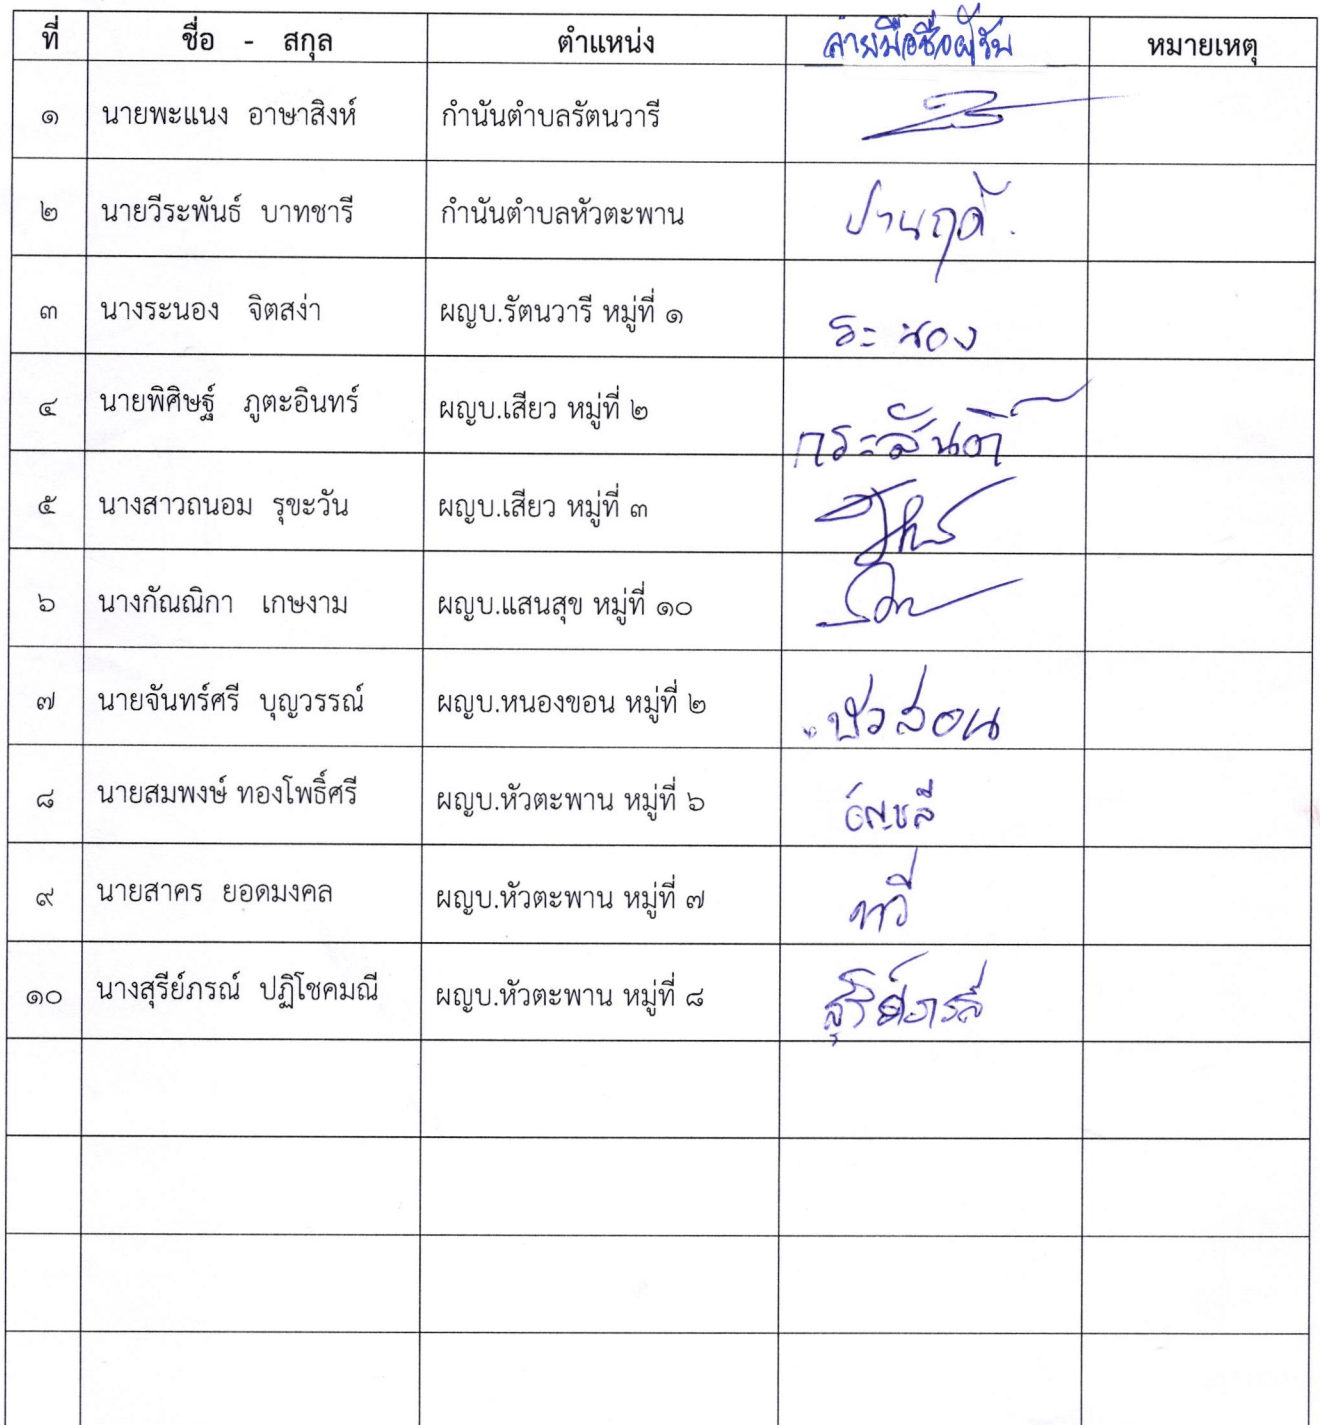 ที่ ชื่อ - สกุล ตำแหน่ง ลายมือชื่อผู้รับ หมายเหตุ
๑ นายพะแนง อาษาสิงห์ กำนันตำบลรัตนวารี
๒ นายวีระพันธ์ บาทชารี กำนันตำบลหัวตะพาน
๓ นางระนอง จิตสง่า ผญบ.รัตนวารี หมู่ที่ ๑ ระนอง
๔ นายพิศิษฐ์ ภูตะอินทร์ ผญบ.เสียว หมู่ที่ ๒
๕ นางสาวถนอม รุขะวัน ผญบ.เสียว หมู่ที่ ๓
๖ นางกัณณิกา เกษงาม ผญบ.แสนสุข หมู่ที่ ๑๐
๗ นายจันทร์ศรี บุญวรรณ์ ผญบ.หนองขอน หมู่ที่ ๒ บัวสอน
๘ นายสมพงษ์ ทองโพธิ์ศรี ผญบ.หัวตะพาน หมู่ที่ ๖
๙ นายสาคร ยอดมงคล ผญบ.หัวตะพาน หมู่ที่ ๗ ทวี
๑๐ นางสุรีย์ภรณ์ ปฏิโชคมณี ผญบ.หัวตะพาน หมู่ที่ ๘ สุรีย์ภรณ์